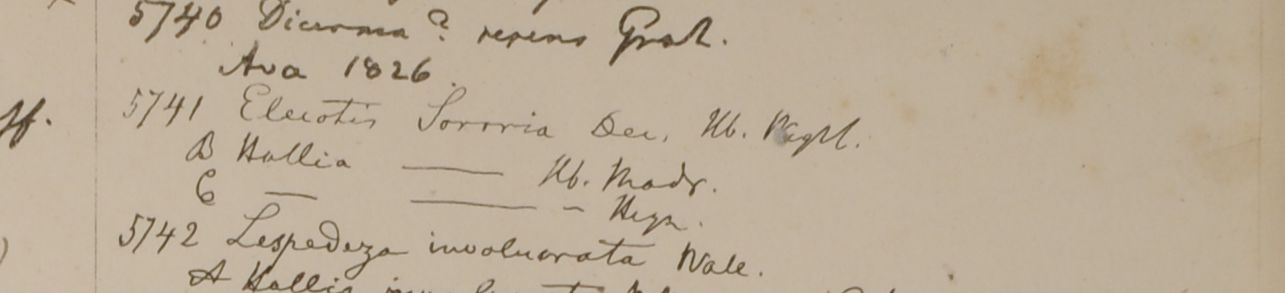 5740 Dicerma? repens Grah.
Ava 1826
ff.
5741 Eleiotis Sororia Dec. Hb. Wight.
B Hallia —— Hb. Madr.
C — —— – Heyn.
5742 Lespedeza involucrata Wall.
A Hallia